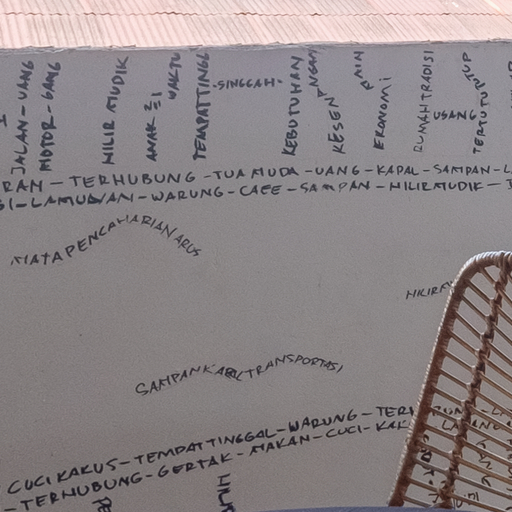 JALAN-UANG
MOTOR-GANG
HILIR MUDIK
ANAK
WAKTU
TEMPAT TINGG
-SINGGAH-
KEBUTUHAN
KESEN
EKONOMI
RUMAH TRADISI
USANG
TERTUTUP
RAN-TERHUBUNG-TUA MUDA-UANG-KAPAL-SAMPAN-L
GI-LAMUNAN-WARUNG-CAFE-SAMPAN-HILIRMUDIK-
MATAPENCAHARIAN ARUS
HILIR
SAMPANKAPALTRANSPORTASI
CUCI KAKUS-TEMPAT TINGGAL-WARUNG-TER
-TERHUBUNG-GERTAK-MAKAN-CUCI-KAK